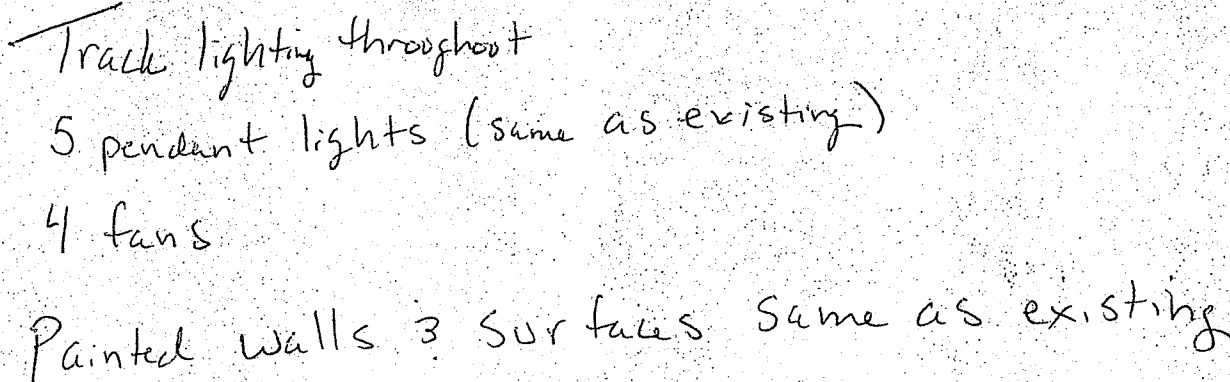 Track lighting throughout
5 pendant lights (same as existing)
4 fans
Painted walls & surfaces same as existing